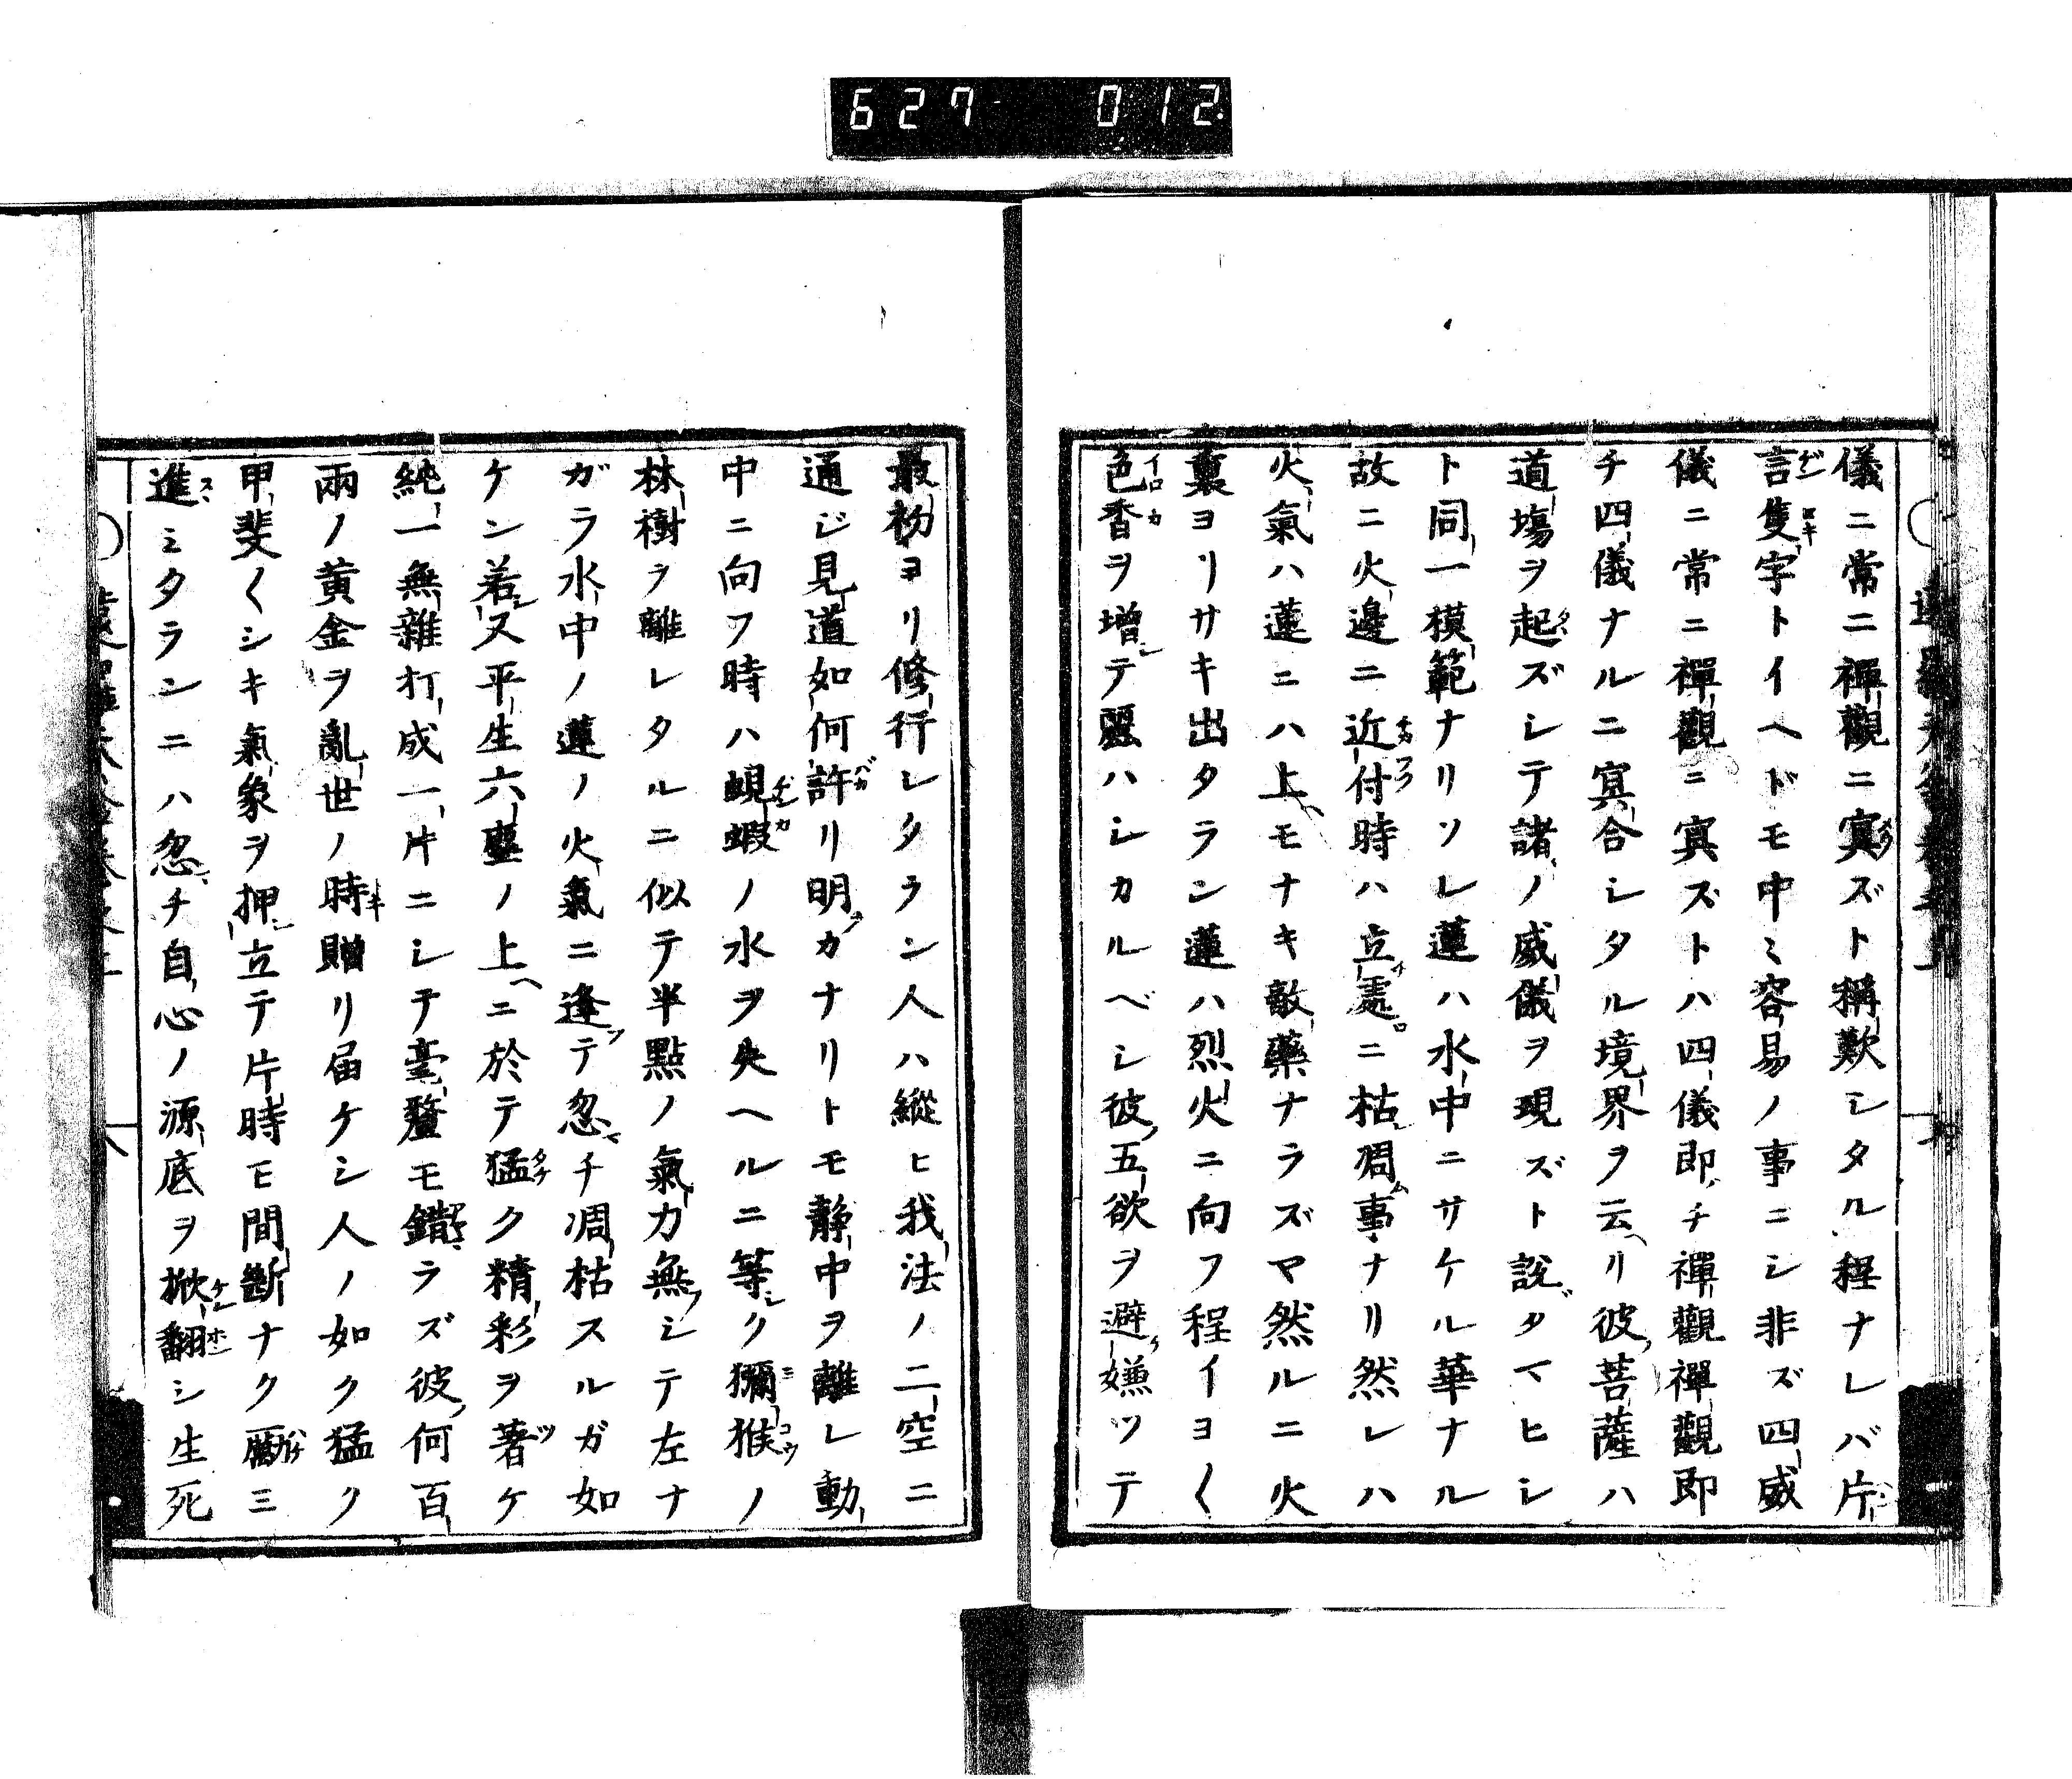 627 012
儀ニ常ニ禪觀ニ冥ズト稱歎シタル程ナレバ片
言隻字トイヘドモ中ミ容易ノ事ニシ非ズ四威
儀ニ常ニ禪觀ニ冥ズトハ四儀即チ禪觀禪觀即
チ四儀ナルニ冥合シタル境界ヲ云リ彼菩薩ハ
道塲ヲ起ズシテ諸ノ威儀ヲ現ズト説タマヒシ
ト同一模範ナリソレ蓮ハ水中ニサケル華ナル
故ニ火邊ニ近付時ハ立處ニ枯凋事ナリ然レハ
火氣ハ蓮ニハ上モナキ敵藥ナラズマ然ルニ火
裏ヨリサキ出タラン蓮ハ烈火ニ向フ程イヨ〱
色香ヲ増テ麗ハシカルベシ彼五欲ヲ避嫌ッテ
最初ヨリ修行レタラン人ハ縱ヒ我法ノ二空ニ
通ジ見道如何許リ明カナリトモ靜中ヲ離レ動
中ニ向フ時ハ蜆蝦ノ水ヲ失ヘルニ等ク獼猴ノ
林樹ヲ離レタルニ似テ半點ノ氣力無シテ左ナ
ガラ水中ノ蓮ノ火氣ニ逢テ忽チ凋枯スルガ如
ケン若又平生六塵ノ上ニ於テ猛ク精彩ヲ著ケ
純一無雜打成一片ニシテ毫釐モ錯ラズ彼何百
兩ノ黄金ヲ亂世ノ時贈リ届ケシ人ノ如ク猛ク
甲斐〱シキ氣象ヲ押立テ片時モ間斷ナク勵ミ
進ミタランニハ忽チ自心ノ源底ヲ掀翻シ生死